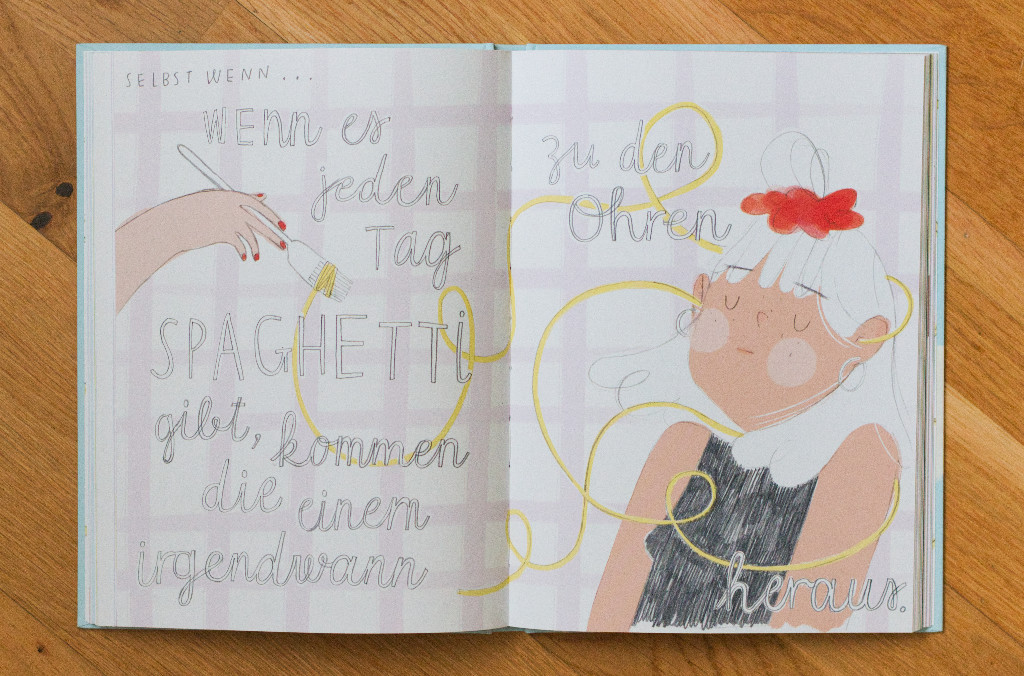 SELBST WENN...
WENN es
jeden
Tag
SPAGHETTi
gibt, kommen
die einem
irgendwann
zu den
Ohren
heraus.